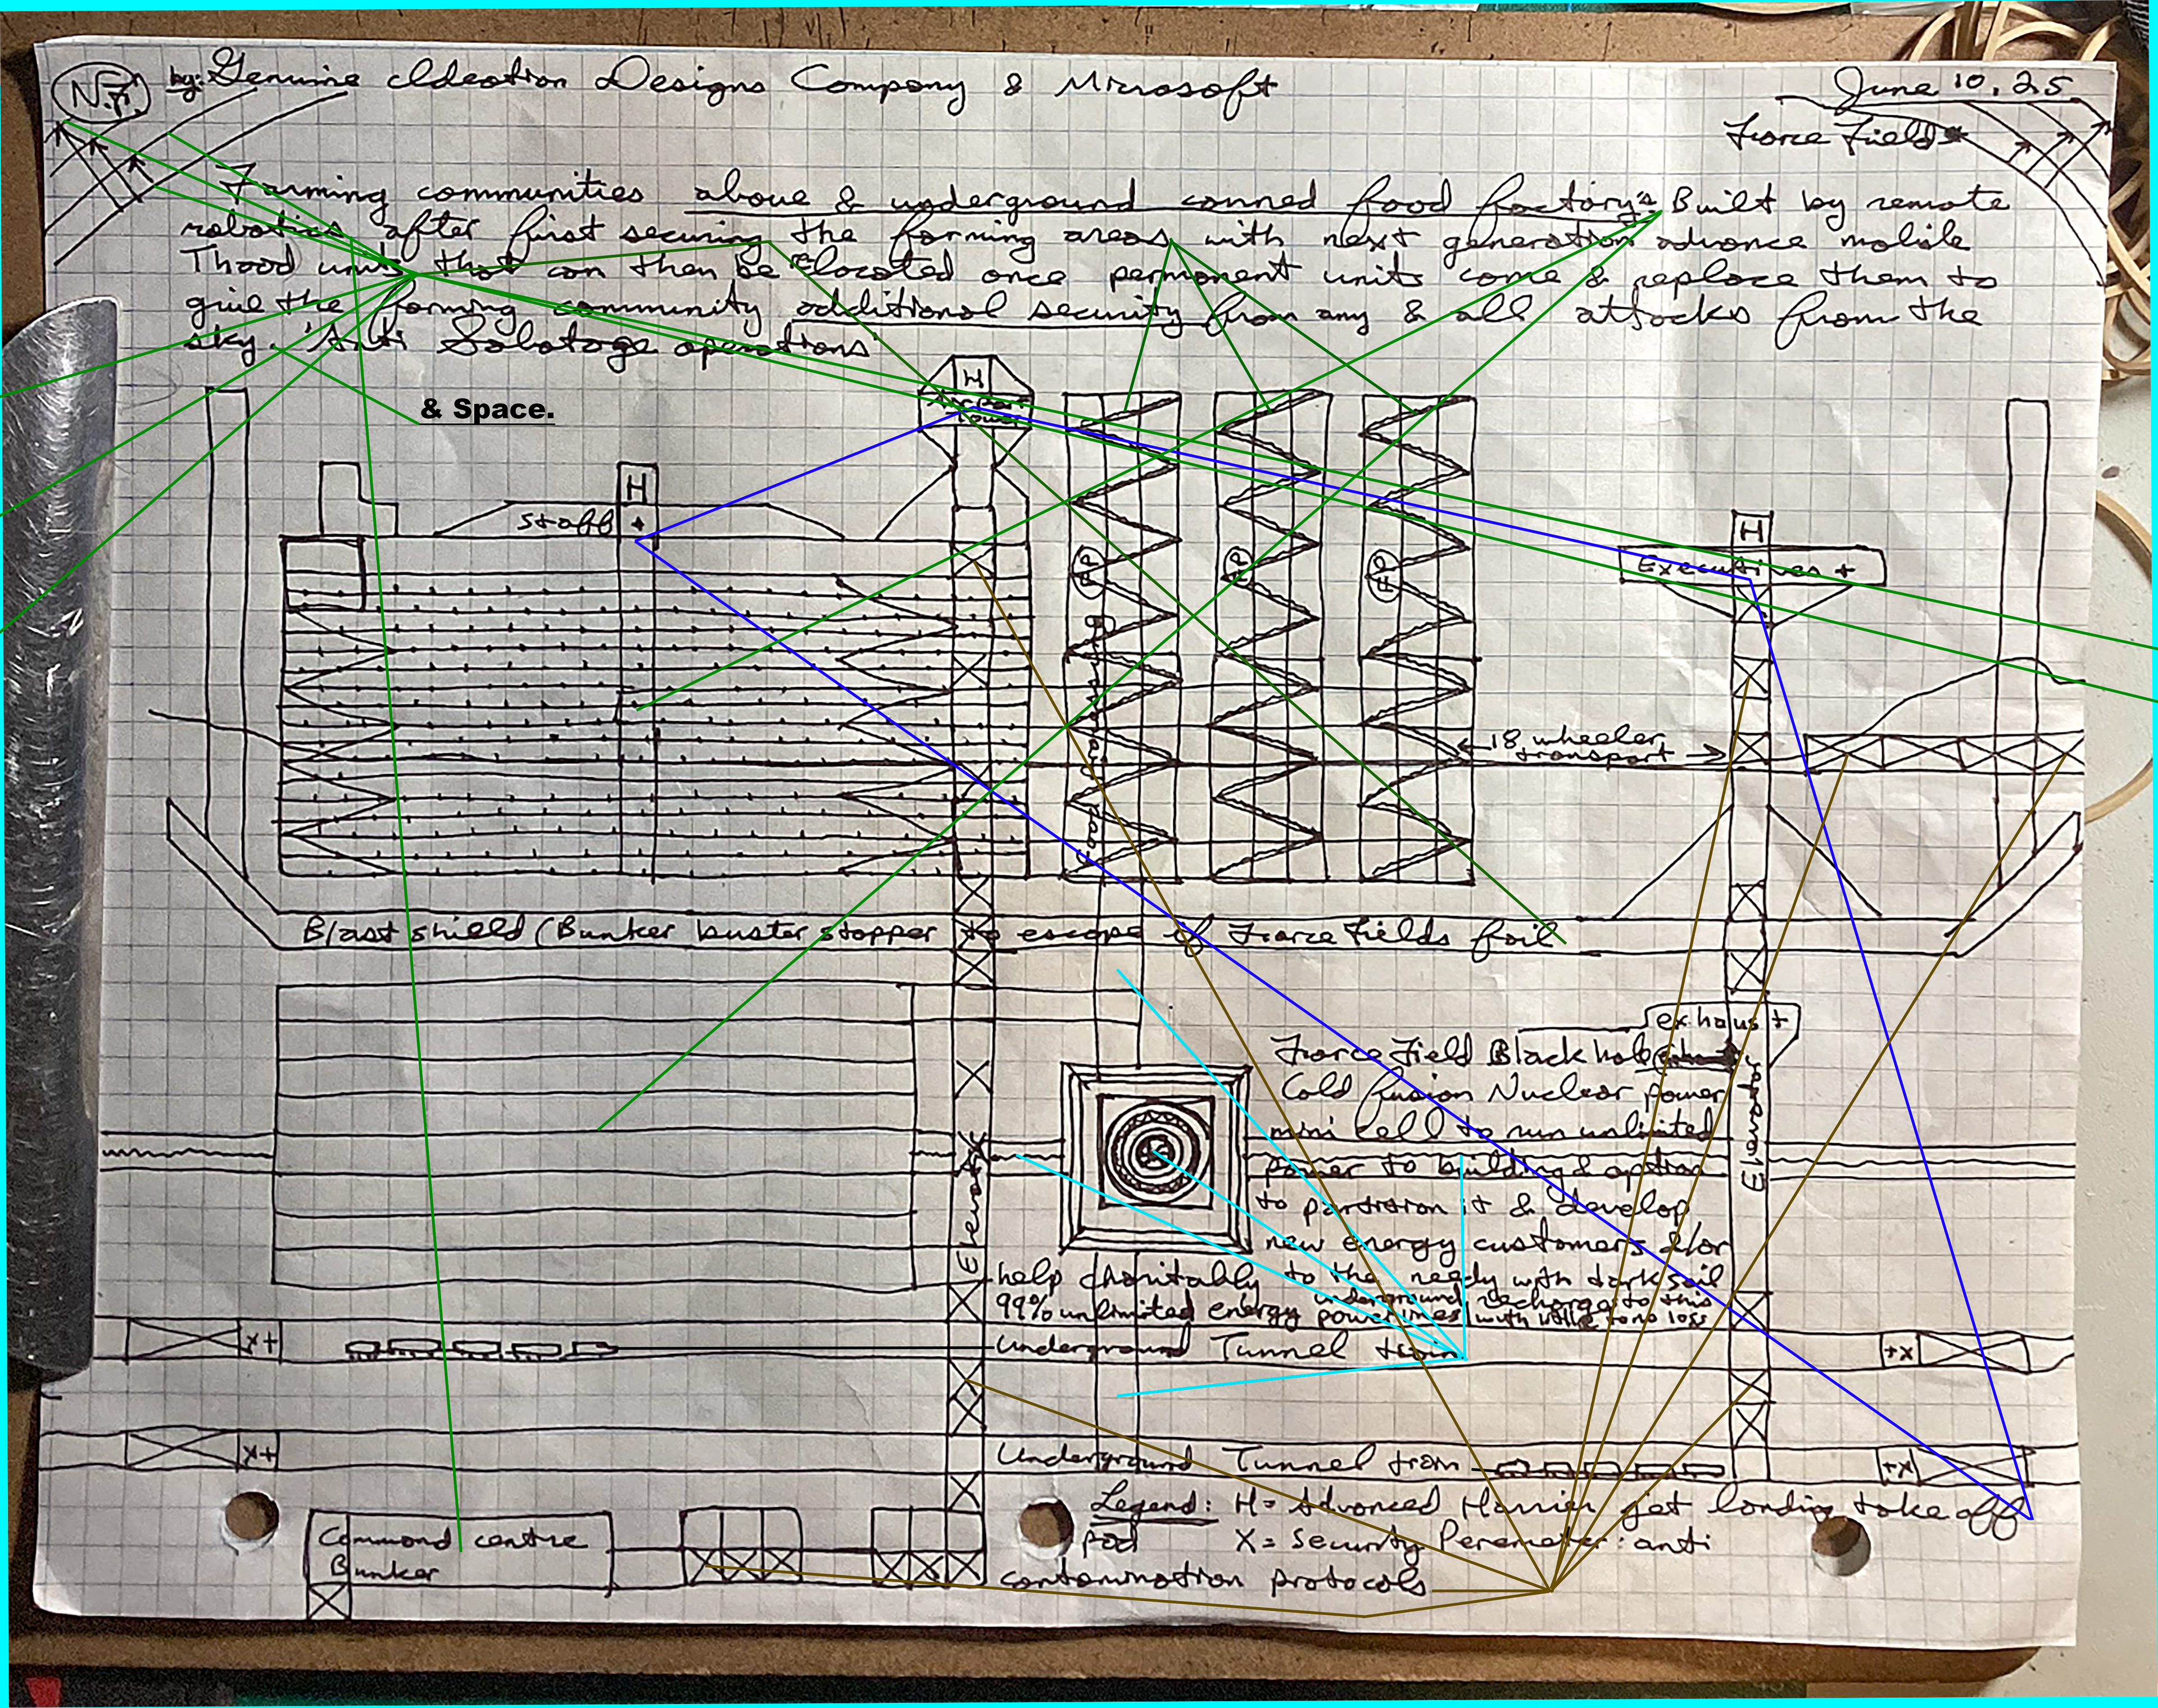 N.F. by: Genuine Ideation Designs Company & Microsoft
June 10, 25
Force Field
Farming communities above & underground canned food factory's Built by remote
robotics after first securing the farming areas with next generation advance mobile
Thaad units that can then be located once permanent units come & replace them to
give the farming community additional security from any & all attacks from the
sky. Anti Sabotage operations
& Space.
H
Air Port
Tower
H
staff +
H
Executives +
18 wheeler
transport
Blast shield (Bunker buster stopper to escape if Force Fields fail
exhaust
Force Field Black hole
Cold fusion Nuclear power
mini cell to run unlimited
power to building & option
to partition it & develop
new energy customers &/or
help charitably to the needy with dark sail
99% unlimited energy underground powerlines recharge to this with little to no loss
Elevator
Elevator
Underground Tunnel train
X+
+X
Underground Tunnel train
X+
+X
Command centre
Bunker
Legend: H = Advanced Harrier jet landing take off
pod X = Security Peremeter: anti
contamination protocols